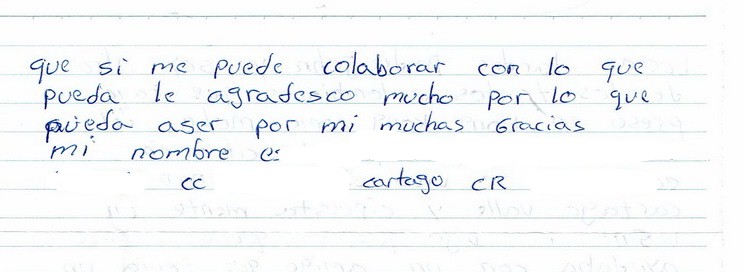 que si me puede colaborar con lo que
pueda le agradesco mucho por lo que
pueda aser por mi muchas Gracias
mi nombre e:
cc cartago CR